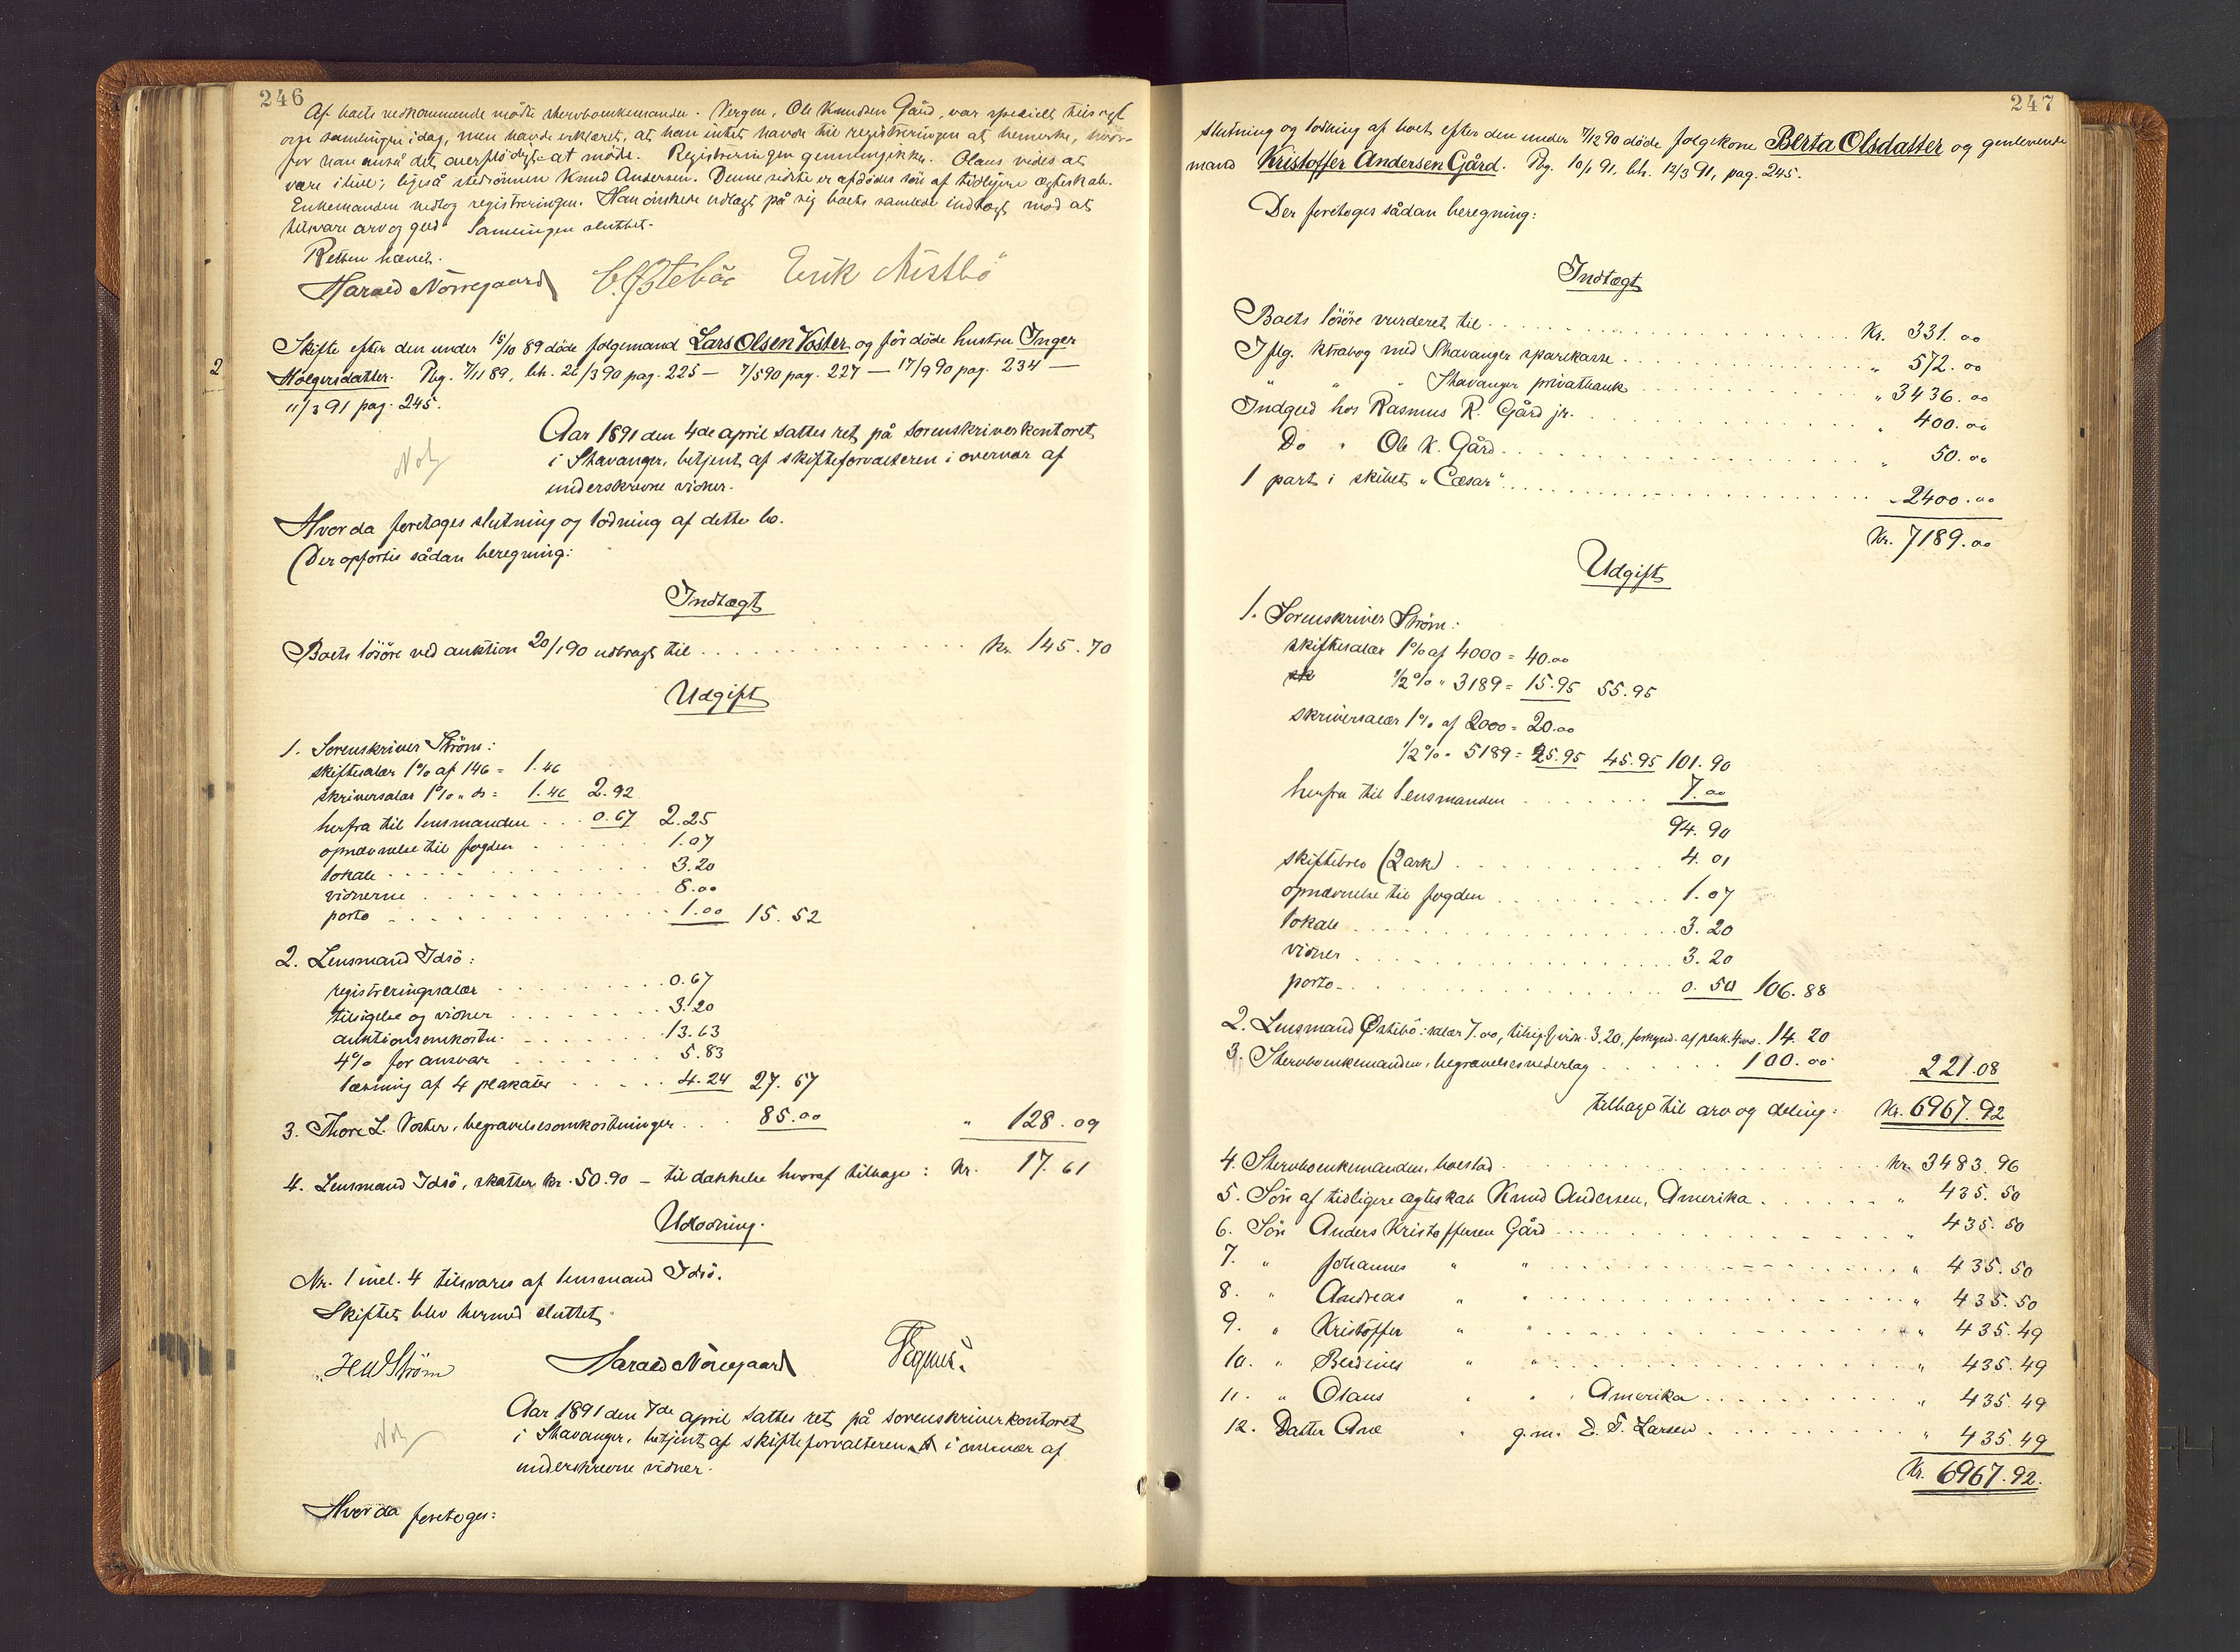 246
Af boets vedkommende mødte stervboenkemanden. Vergen, Ole Knudsen Gård, var specielt tilsagt
om samlingen idag, men havde erklæret, at han intet havde til registreringen at bemerke, hvor-
for han anså det overflødigt at møde. Registreringen gennemgikkes. Olaus vides at
være ilive; ligeså stedsønnen Knud Andersen. Denne sidste er afdødes søn af tidligere ægteskab.
Enkemanden vedtog registreringen. Han ønskede udlagt på sig boets samlede indtægt mod at
tilsvare arv og gjeld. Samlingen sluttet.
Retten hævet.
Harald Nørregaard Erik
Skifte efter den under 15/10 89 døde folgemand Lars Olsen Voster og før døde hustru Inger
Holgersdatter. Pbg. 7/11 89, beh. 26/3 90 pag. 225 – 7/5 90 pag. 227 – 17/9 90 pag. 234 –
11/3 91 pag. 245.
2
Aar 1891 den 4de april sattes ret på sorenskriverkontoret
i Stavanger, betjent af skifteforvalteren i overvær af
underskrevne vidner.
Not
Hvor da foretoges slutning og lodning af dette bo.
Der opførtes sådan beregning:
Indtægt
Boets løsøre ved auktion 20/1 90 udbragt til . . . . . kr. 145.70
Udgift
1. Sorenskriver Strøm:
skiftesalær 1% af 146 = 1.46
skriversalær 1% " do = 1.46 2.92
herfra til lensmanden . . . 0.67 2.25
opnævnelse til fogden . . . 1.07
lokale . . . 3.20
vidnerne . . . 8.00
porto . . . 1.00 15.52
2. Lensmand Idsø:
registreringssalær . . . 0.67
tilsigelse og vidner . . . 3.20
auktionsomkostn. . . . 13.63
4% for ansvar . . . 5.83
læsning af 4 plakater . . . 4.24 27.57
3. Thore L. Voster, begravelsesomkostninger . . . 85.00 " 128.09
4. Lensmand Idsø, skatter kr. 50.90 – til dækkelse hvoraf tilbage: kr. 17.61
Udlodning.
Nr. 1 incl. 4 tilsvares af lensmand Idsø.
Skiftet blev hermed sluttet.
HW Strøm Harald Nørregaard
Aar 1891 den 7de april sattes ret på sorenskriverkontoret
i Stavanger, betjent af skifteforvalteren i overvær af
underskrevne vidner.
Not
Hvor da foretoges:
247
slutning og lodning af boet efter den under 7/12 90 døde folgekone Berta Olsdatter og genlevende
mand Kristoffer Andersen Gård. Pbg. 10/1 91, beh. 12/3 91, pag. 245.
Der foretoges sådan beregning:
Indtægt
Boets løsøre vurderet til . . . Kr. 331.00
Iflg. ktrabog med Stavanger sparekasse . . . " 572.00
" " " Stavanger privatbank . . . " 3436.00
Indgeld hos Rasmus R. Gård jr. . . . " 400.00
Do " Ole K. Gård . . . " 50.00
1 part i skibet "Cæsar" . . . " 2400.00
Kr. 7189.00
Udgift
1. Sorenskriver Strøm:
skiftesalær 1% af 4000 = 40.00
1/2% " 3189 = 15.95 55.95
skriversalær 1% af 2000 = 20.00
1/2% " 5189 = 25.95 45.95 101.90
herfra til lensmanden . . . 7.00
94.90
skiftebrev (2 ark) . . . 4.01
opnævnelse til fogden . . . 1.07
lokale . . . 3.20
vidner . . . 3.20
porto . . . 0.50 106.88
2. Lensmand Østebø: salær 7.00, tilsig. f. vidn. 3.20, forkynd. af plak. 4.00. 14.20
3. Stervboenkemanden, begravelsesvederlag . . . 100.00 221.08
tilbage til arv og deling: Kr. 6967.92
4. Stervboenkemanden, boeslod . . . kr. 3483.96
5. Søn af tidligere ægteskab Knud Andersen, Amerika . . . " 435.50
6. Søn Anders Kristoffersen Gård . . . " 435.50
7. " Johannes " " . . . " 435.50
8. " Andreas " " . . . " 435.50
9. " Kristoffer " " . . . " 435.49
10. " Berdines " " . . . " 435.49
11. " Olaus " " , Amerika . . . " 435.49
12. Datter Ane " g.m. E. T. Larsen . . . " 435.49
Kr. 6967.92.